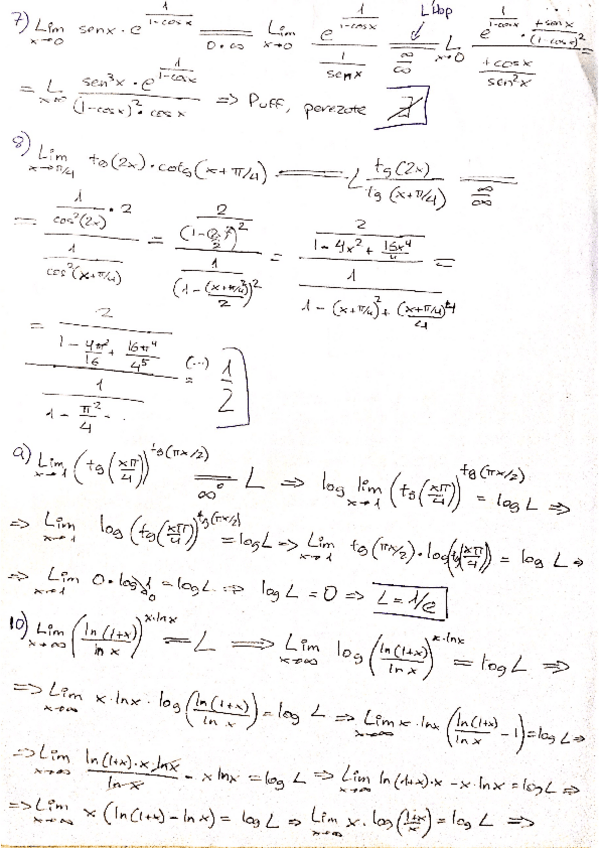 7) Lim x→0 senx · e^(1/(1-cosx)) =(0·∞)= Lim x→0 e^(1/(1-cosx)) / (1/senx) =(∞/∞)= L'Hop L x→0 (e^(1/(1-cosx)) · +senx/(1-cosx)²) / (+cosx/sen²x) =
= L (sen³x · e^(1/(1-cosx))) / ((1-cosx)² · cosx) => Puff, perezote ∄
8) Lim x→π/4 tg(2x)·cotg(x+π/4) = L tg(2x) / tg(x+π/4) =(∞/∞)=
= (1/cos²(2x) · 2) / (1/cos²(x+π/4)) = (2/(1-)²) / (1/(1-(x+π/4)²/2)²) = (2/(1-4x²+16x⁴/4)) / (1/(1-(x+π/4)²+(x+π/4)⁴/4)) =
= (2/(1-4π²/16+16π⁴/4⁵)) / (1/(1-π²/4-..)) =(...)= 1/2
9) Lim x→1 (tg(xπ/4))^tg(πx/2) = L => log lim x→1 (tg(xπ/4))^tg(πx/2) = log L =>
=> Lim x→1 log(tg(xπ/4))^tg(πx/2) = log L => Lim x→1 tg(πx/2)·log(tg(xπ/4)) = log L =>
=> Lim x→1 0·log 1 = log L => log L = 0 => L = 1/e
10) Lim x→∞ (ln(1+x)/ln x)^(x·lnx) = L => Lim x→∞ log(ln(1+x)/ln x)^(x·lnx) = log L =>
=> Lim x→∞ x·lnx·log(ln(1+x)/ln x) = log L => Lim x→∞ x·lnx(ln(1+x)/ln x - 1) = log L =>
=> Lim x→∞ ln(1+x)·x·lnx/ln x - x lnx = log L => Lim x→∞ ln(1+x)·x - x·lnx = log L =>
=> Lim x→∞ x(ln(1+x) - ln x) = log L => Lim x→∞ x·log((1+x)/x) = log L =>